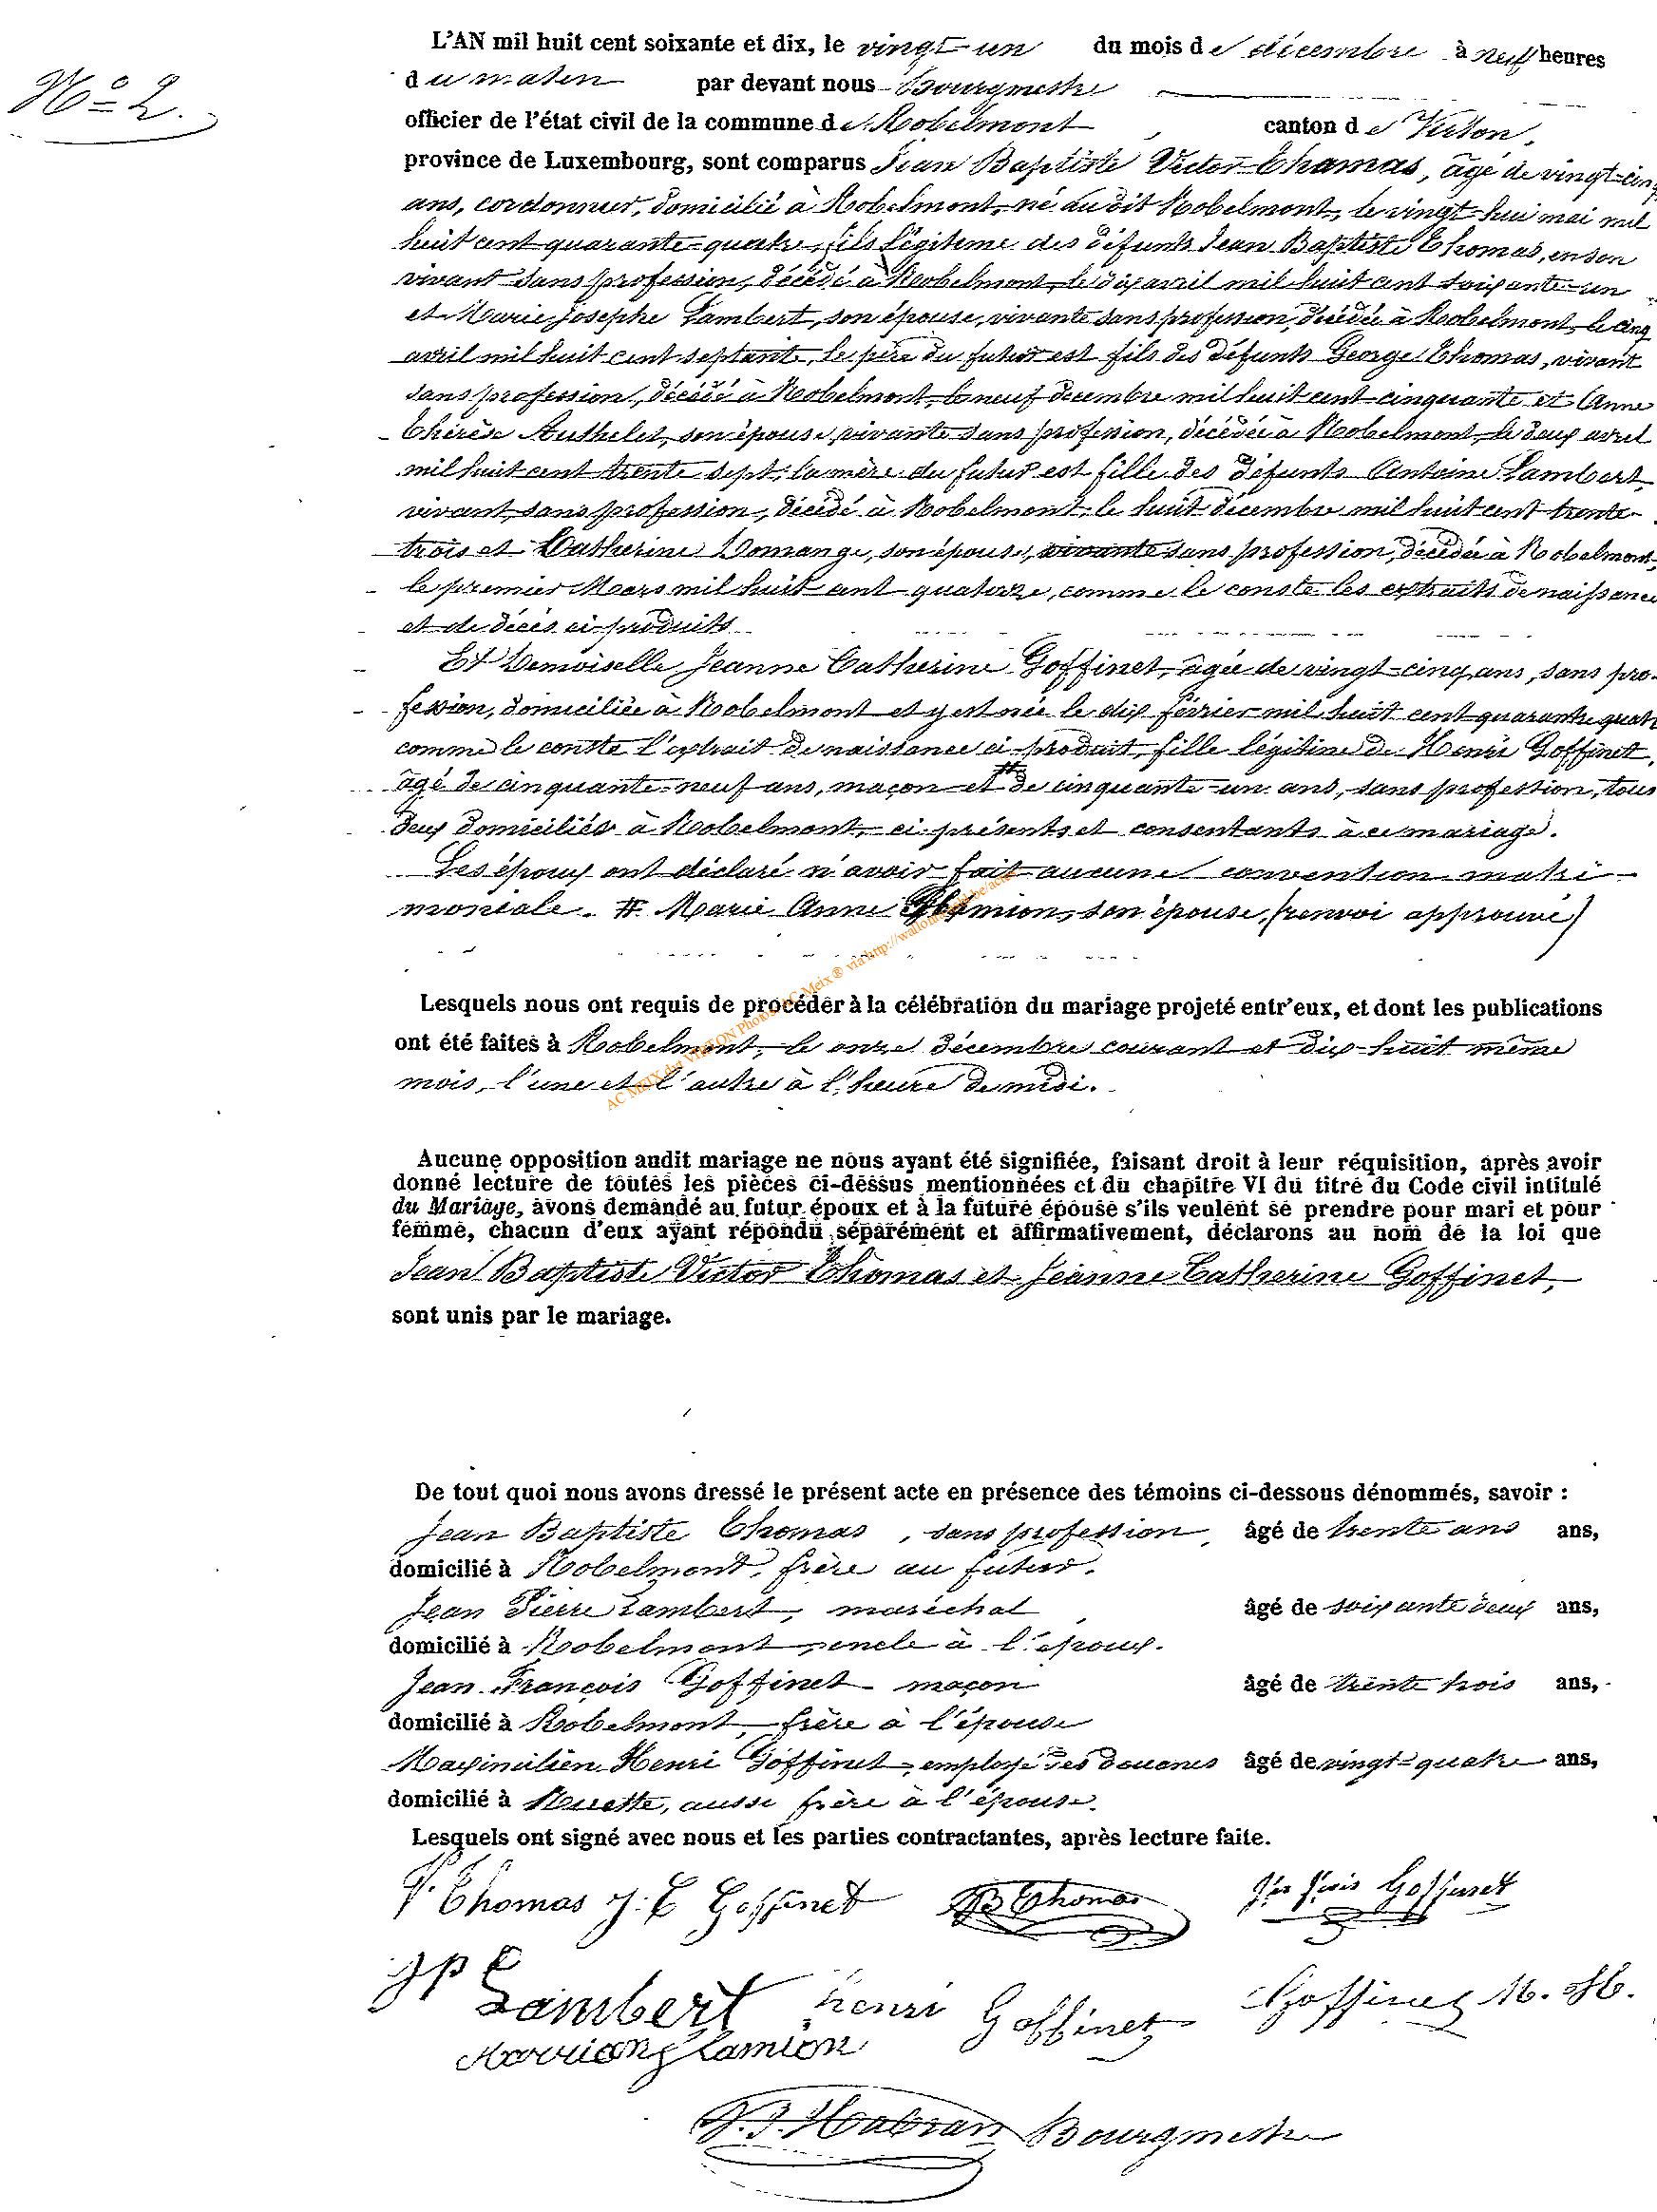 N° 2.
L'AN mil huit cent soixante et dix, le vingt-un du mois de décembre à neuf heures
du matin par devant nous Bourgmestre
officier de l'état civil de la commune de Robelmont, canton de Virton,
province de Luxembourg, sont comparus Jean Baptiste Victor Thomas, âgé de vingt-cinq
ans, cordonnier, domicilié à Robelmont, né au dit Robelmont, le vingt-hui mai mil
huit cent quarante-quatre, fils légitime des défunts Jean Baptiste Thomas, en son
vivant sans profession, décédé à Robelmont, le dix avril mil huit cent soixante-un
et Marie Josephe Lambert, son épouse, vivante sans profession, décédée à Robelmont, le cinq
avril mil huit cent septante, le père du futur est fils des défunts George Thomas, vivant
sans profession, décédé à Robelmont, le neuf decembre mil huit cent cinquante et Anne
Thérèse Authelet, son épouse vivante sans profession, décédée à Robelmont, le deux avril
mil huit cent trente sept; la mère du futur est fille des défunts Antoine Lambert,
vivant, sans profession, décédé à Robelmont, le huit décembre mil huit cent trente-
trois et Catherine Domange, son épouse, vivante sans profession, décédée à Robelmont,
le premier Mars mil huit cent quatorze, comme le conste les extraits de naissance
et de décès ci-produits
Et Demoiselle Jeanne Catherine Goffinet, âgée de vingt-cinq ans, sans pro-
fession, domiciliée à Robelmont et y est née le dix février mil huit cent quarante quatre
comme le conste l'extrait de naissance ci-produit, fille légitime de Henri Goffinet,
âgé de cinquante-neuf ans, maçon et # de cinquante-un ans, sans profession, tous
deux domiciliés à Robelmont, ci-présents et consentants à ce mariage.
Les époux ont déclaré n'avoir fait aucune convention matri-
moniale. # Marie Anne Glamion, son épouse, (renvoi approuvé)
Lesquels nous ont requis de procéder à la célébration du mariage projeté entr'eux, et dont les publications
ont été faites à Robelmont, le onze décembre courant et dix-huit même
mois, l'une et l'autre à l'heure de midi.
AC MEIX dvt VIRTON Photos AC Meix ® via http://wallonica.be/acte
Aucune opposition audit mariage ne nous ayant été signifiée, faisant droit à leur réquisition, après avoir
donné lecture de toutes les pièces ci-dessus mentionnées et du chapitre VI du titre du Code civil intitulé
du Mariage, avons demandé au futur époux et à la future épouse s'ils veulent se prendre pour mari et pour
femme, chacun d'eux ayant répondu séparément et affirmativement, déclarons au nom de la loi que
Jean Baptiste Victor Thomas et Jeanne Catherine Goffinet,
sont unis par le mariage.
De tout quoi nous avons dressé le présent acte en présence des témoins ci-dessous dénommés, savoir :
Jean Baptiste Thomas, sans profession, âgé de trente ans ans,
domicilié à Robelmont, frère au futur.
Jean Pierre Lambert, maréchal, âgé de soixante deux ans,
domicilié à Robelmont, oncle à l'époux.
Jean François Goffinet maçon âgé de trente trois ans,
domicilié à Robelmont, frère à l'épouse
Maximilien Henri Goffinet, employé des douanes âgé de vingt-quatre ans,
domicilié à Ruette, aussi frère à l'épouse.
Lesquels ont signé avec nous et les parties contractantes, après lecture faite.
V. Thomas J. C Goffinet JB Thomas Jn fçois Goffinet
JP Lambert henri Goffinet Goffinet M. H.
Marrianglamion
J. J. Habran Bourgmestre